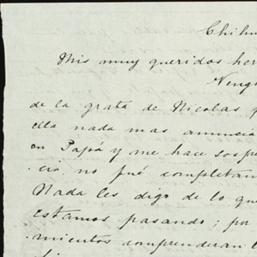 Chihu
Mis muy queridos her
Veng
de la grata de Nicolas q
ella nada mas anuncia
on Papá y me hace sosp
cio no fué completam
Nada les digo de lo qu
estamos pasando; por
mientos comprenderan l